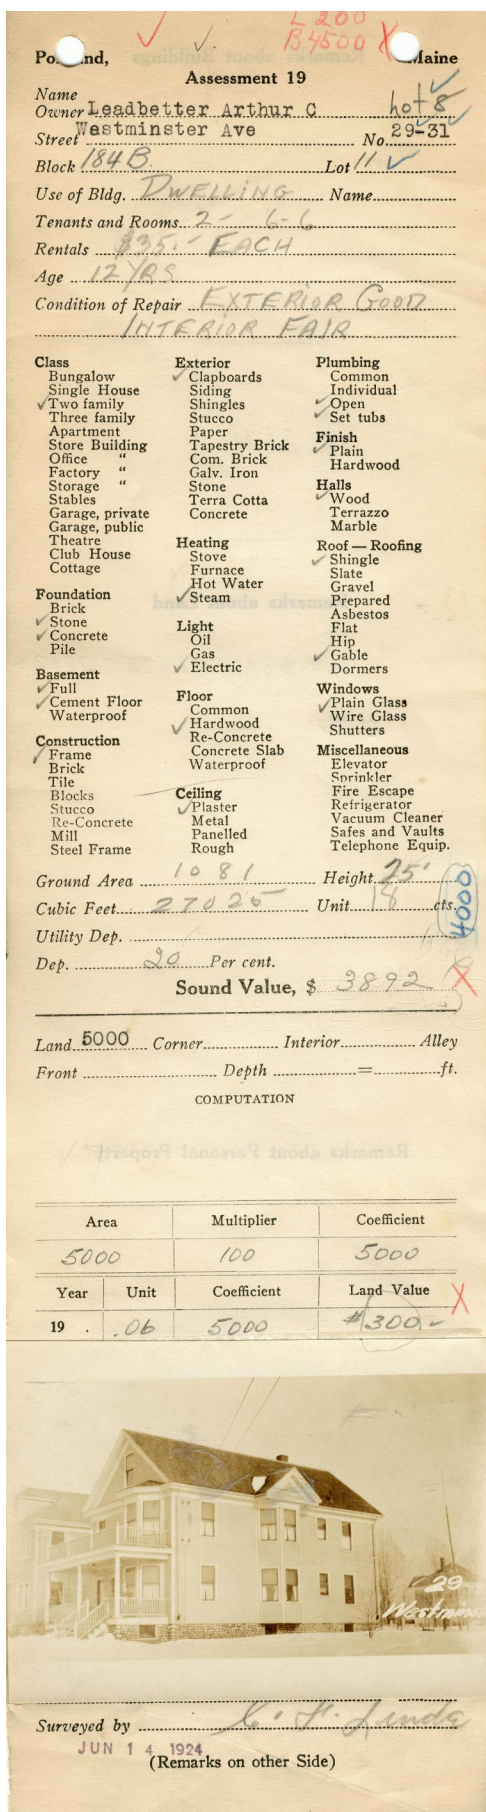 L 200
B. 4500 X
Portland, Maine
Assessment 19
Name
Owner Leadbetter Arthur C hot 8
Street Westminster Ave No. 29-31
Block 184B Lot 11
Use of Bldg. DWELLING Name
Tenants and Rooms 2- 6-6
Rentals $35.- EACH
Age 12 YRS
Condition of Repair EXTERIOR GOOD
INTERIOR FAIR
Class
Bungalow
Single House
✓Two family
Three family
Apartment
Store Building
Office "
Factory "
Storage "
Stables
Garage, private
Garage, public
Theatre
Club House
Cottage
Foundation
Brick
✓Stone
✓Concrete
Pile
Basement
✓Full
✓Cement Floor
Waterproof
Construction
✓Frame
Brick
Tile
Blocks
Stucco
Re-Concrete
Mill
Steel Frame
Exterior
✓Clapboards
Siding
Shingles
Stucco
Paper
Tapestry Brick
Com. Brick
Galv. Iron
Stone
Terra Cotta
Concrete
Heating
Stove
Furnace
Hot Water
✓Steam
Light
Oil
Gas
✓Electric
Floor
Common
✓Hardwood
Re-Concrete
Concrete Slab
Waterproof
Ceiling
✓Plaster
Metal
Panelled
Rough
Plumbing
Common
Individual
✓Open
✓Set tubs
Finish
✓Plain
Hardwood
Halls
✓Wood
Terrazzo
Marble
Roof — Roofing
✓Shingle
Slate
Gravel
Prepared
Asbestos
Flat
Hip
✓Gable
Dormers
Windows
✓Plain Glass
Wire Glass
Shutters
Miscellaneous
Elevator
Sprinkler
Fire Escape
Refrigerator
Vacuum Cleaner
Safes and Vaults
Telephone Equip.
Ground Area 1081 Height 25'
Cubic Feet 27025 Unit 18 cts.
4000
Utility Dep.
Dep. 20 Per cent.
Sound Value, $ 3892 X
Land 5000 Corner Interior Alley
Front Depth = ft.
COMPUTATION
Area Multiplier Coefficient
5000 100 5000
Year Unit Coefficient Land Value X
19 . .06 5000 $300.-
29
Westmins
Surveyed by C. F. Linde
JUN 14 1924
(Remarks on other Side)